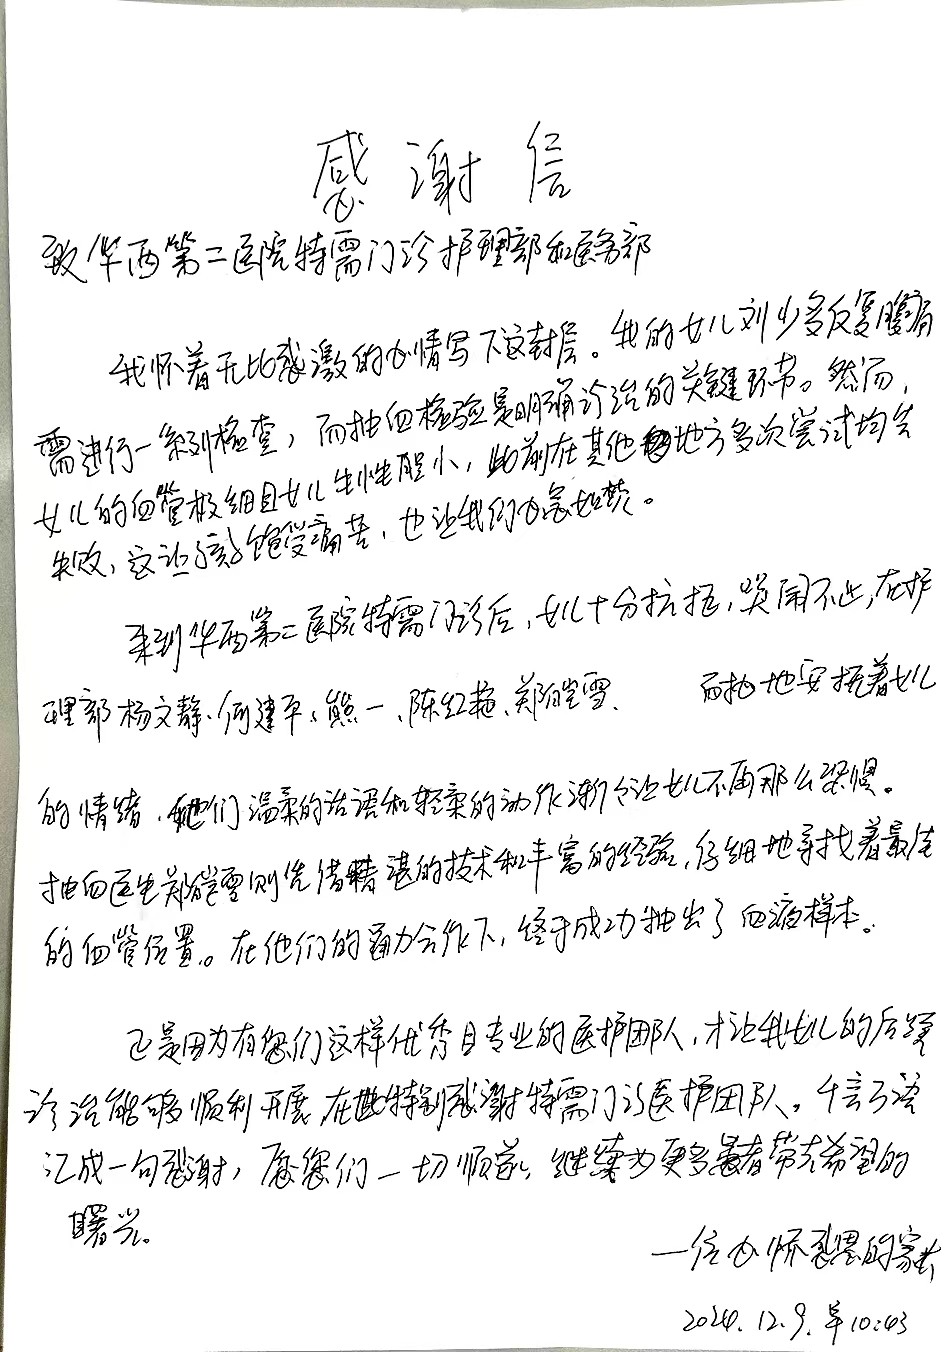 感谢信
致华西第二医院特需门诊护理部和医务部
我怀着无比感激的心情写下这封信。我的女儿刘少多反复腹痛
需进行一系列检查，而抽血检验是明确诊治的关键环节。然而，
女儿的血管极细且女儿生性胆小，此前在其他地方多次尝试均告
失败，这让孩子饱受痛苦，也让我们心急如焚。
来到华西第二医院特需门诊后，女儿十分抗拒，哭闹不止，在护
理部杨文静、何建平、熊一、陈红艳、郑皑雪、 而抽地安抚着女儿
的情绪，她们温柔的话语和轻柔的动作渐渐让女儿不再那么恐惧。
抽血医生郑皑雪则凭借精湛的技术和丰富的经验，仔细地寻找着最佳
的血管位置。在他们的通力合作下，终于成功抽出了血液样本。
正是因为有您们这样优秀且专业的医护团队，才让我女儿的后续
诊治能够顺利开展，在此特别感谢特需门诊医护团队。千言万语
汇成一句感谢，愿您们一切顺遂，继续为更多患者带去希望的
曙光。
一位心怀感恩的家长
2024.12.9.早10:43